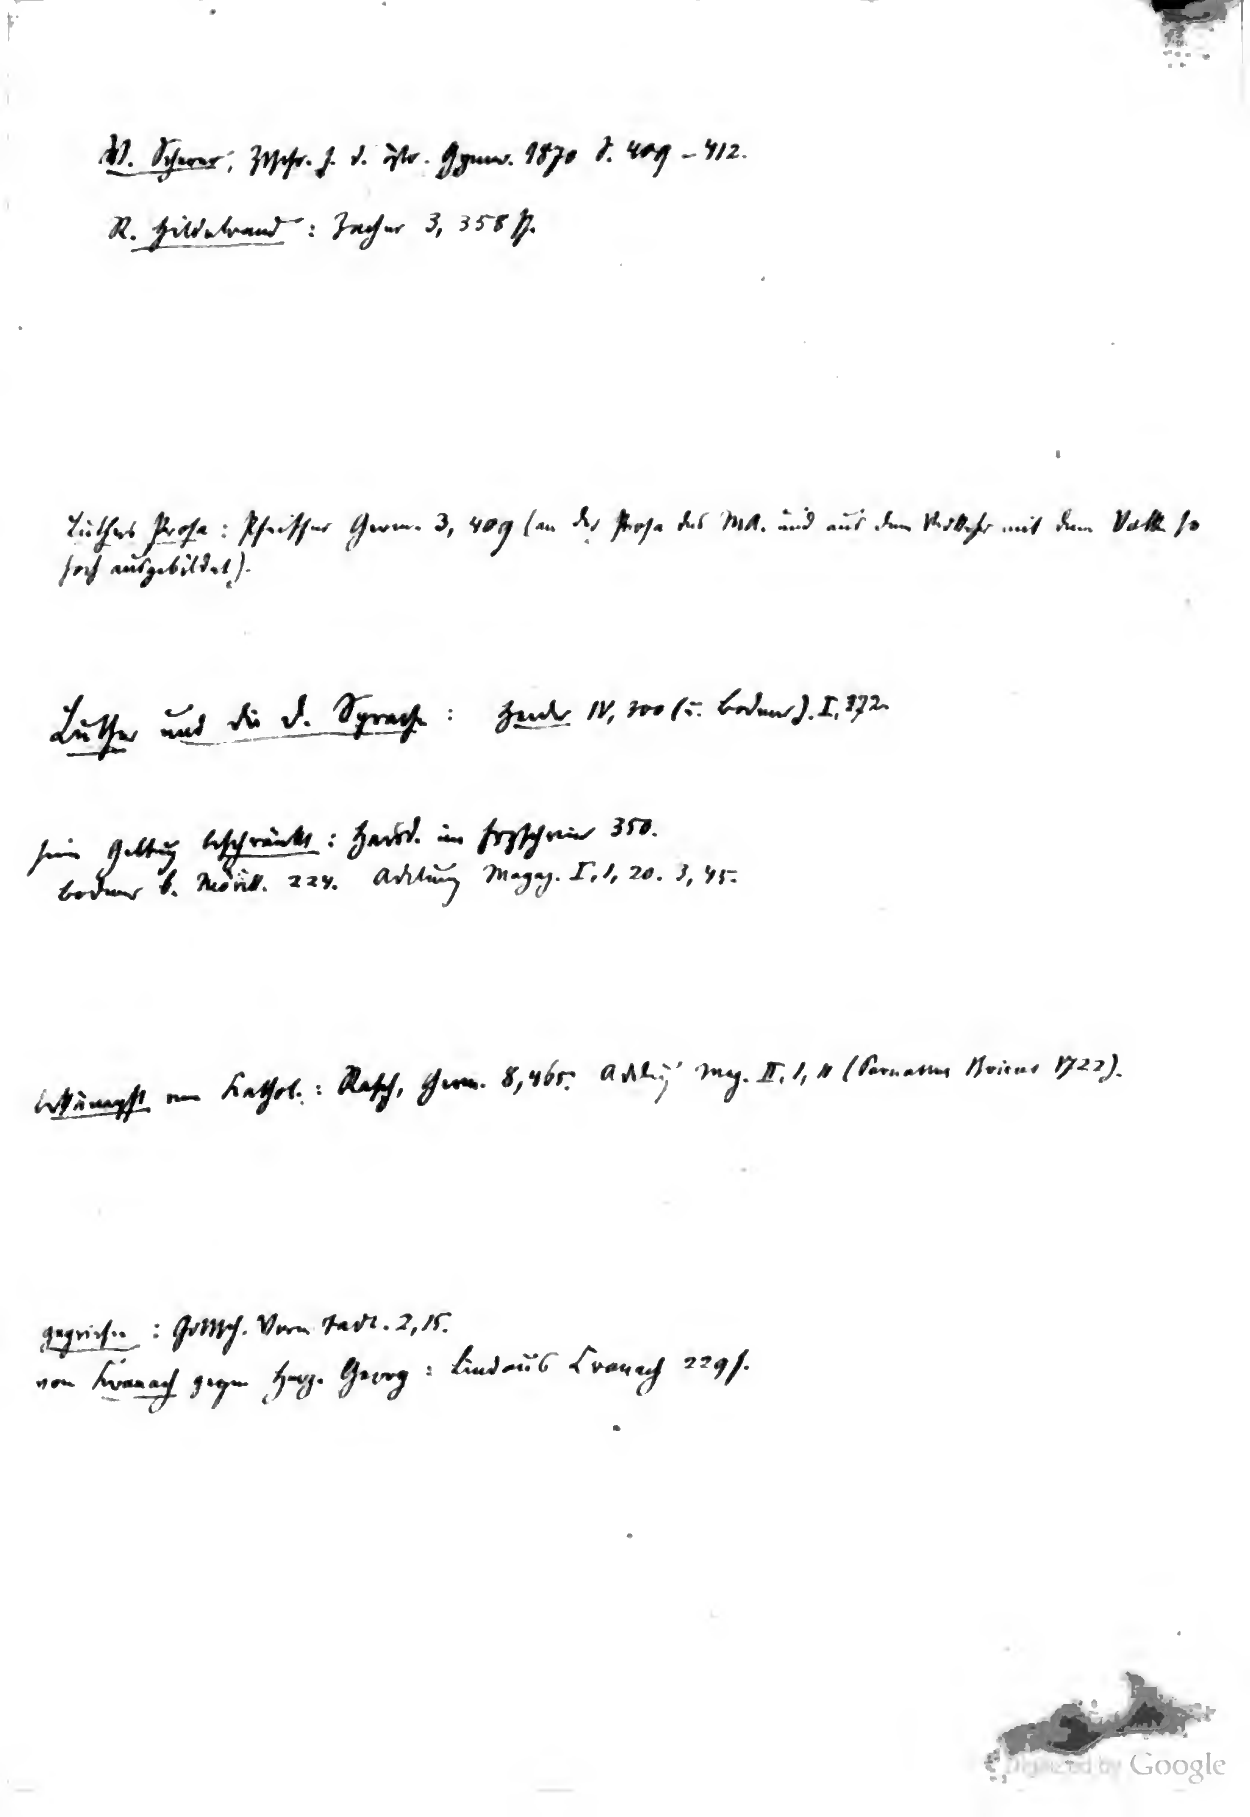 W. Scherer, Ztschr. f. d. östr. Gymn. 1870 S. 409–412.
R. Hildebrand: Zacher 3, 358 ff.
Luthers Prosa: Pfeiffer Germ. 3, 409 (an der Prosa des MA. und aus dem Verkehr mit dem Volk so
hoch ausgebildet).
Luther und die d. Sprache: Herder IV, 300 (v. Bodmer). I, 372.
sein Geltung beschränkt: Harsd. im 350.
Bodmer b. Mörik. 224. Adelung Magaz. I, 1, 20. 3, 45.
bekämpft von Kathol.: Germ. 8, 465. Adelung Mag. II, 1, 11 (Parnassus Boicus 1722).
gepriesen: Gottsch. Vern. Tadl. 2, 15.
von Kranach gegen Herz. Georg: Lindaus Cranach 229 f.
Digitized by Google